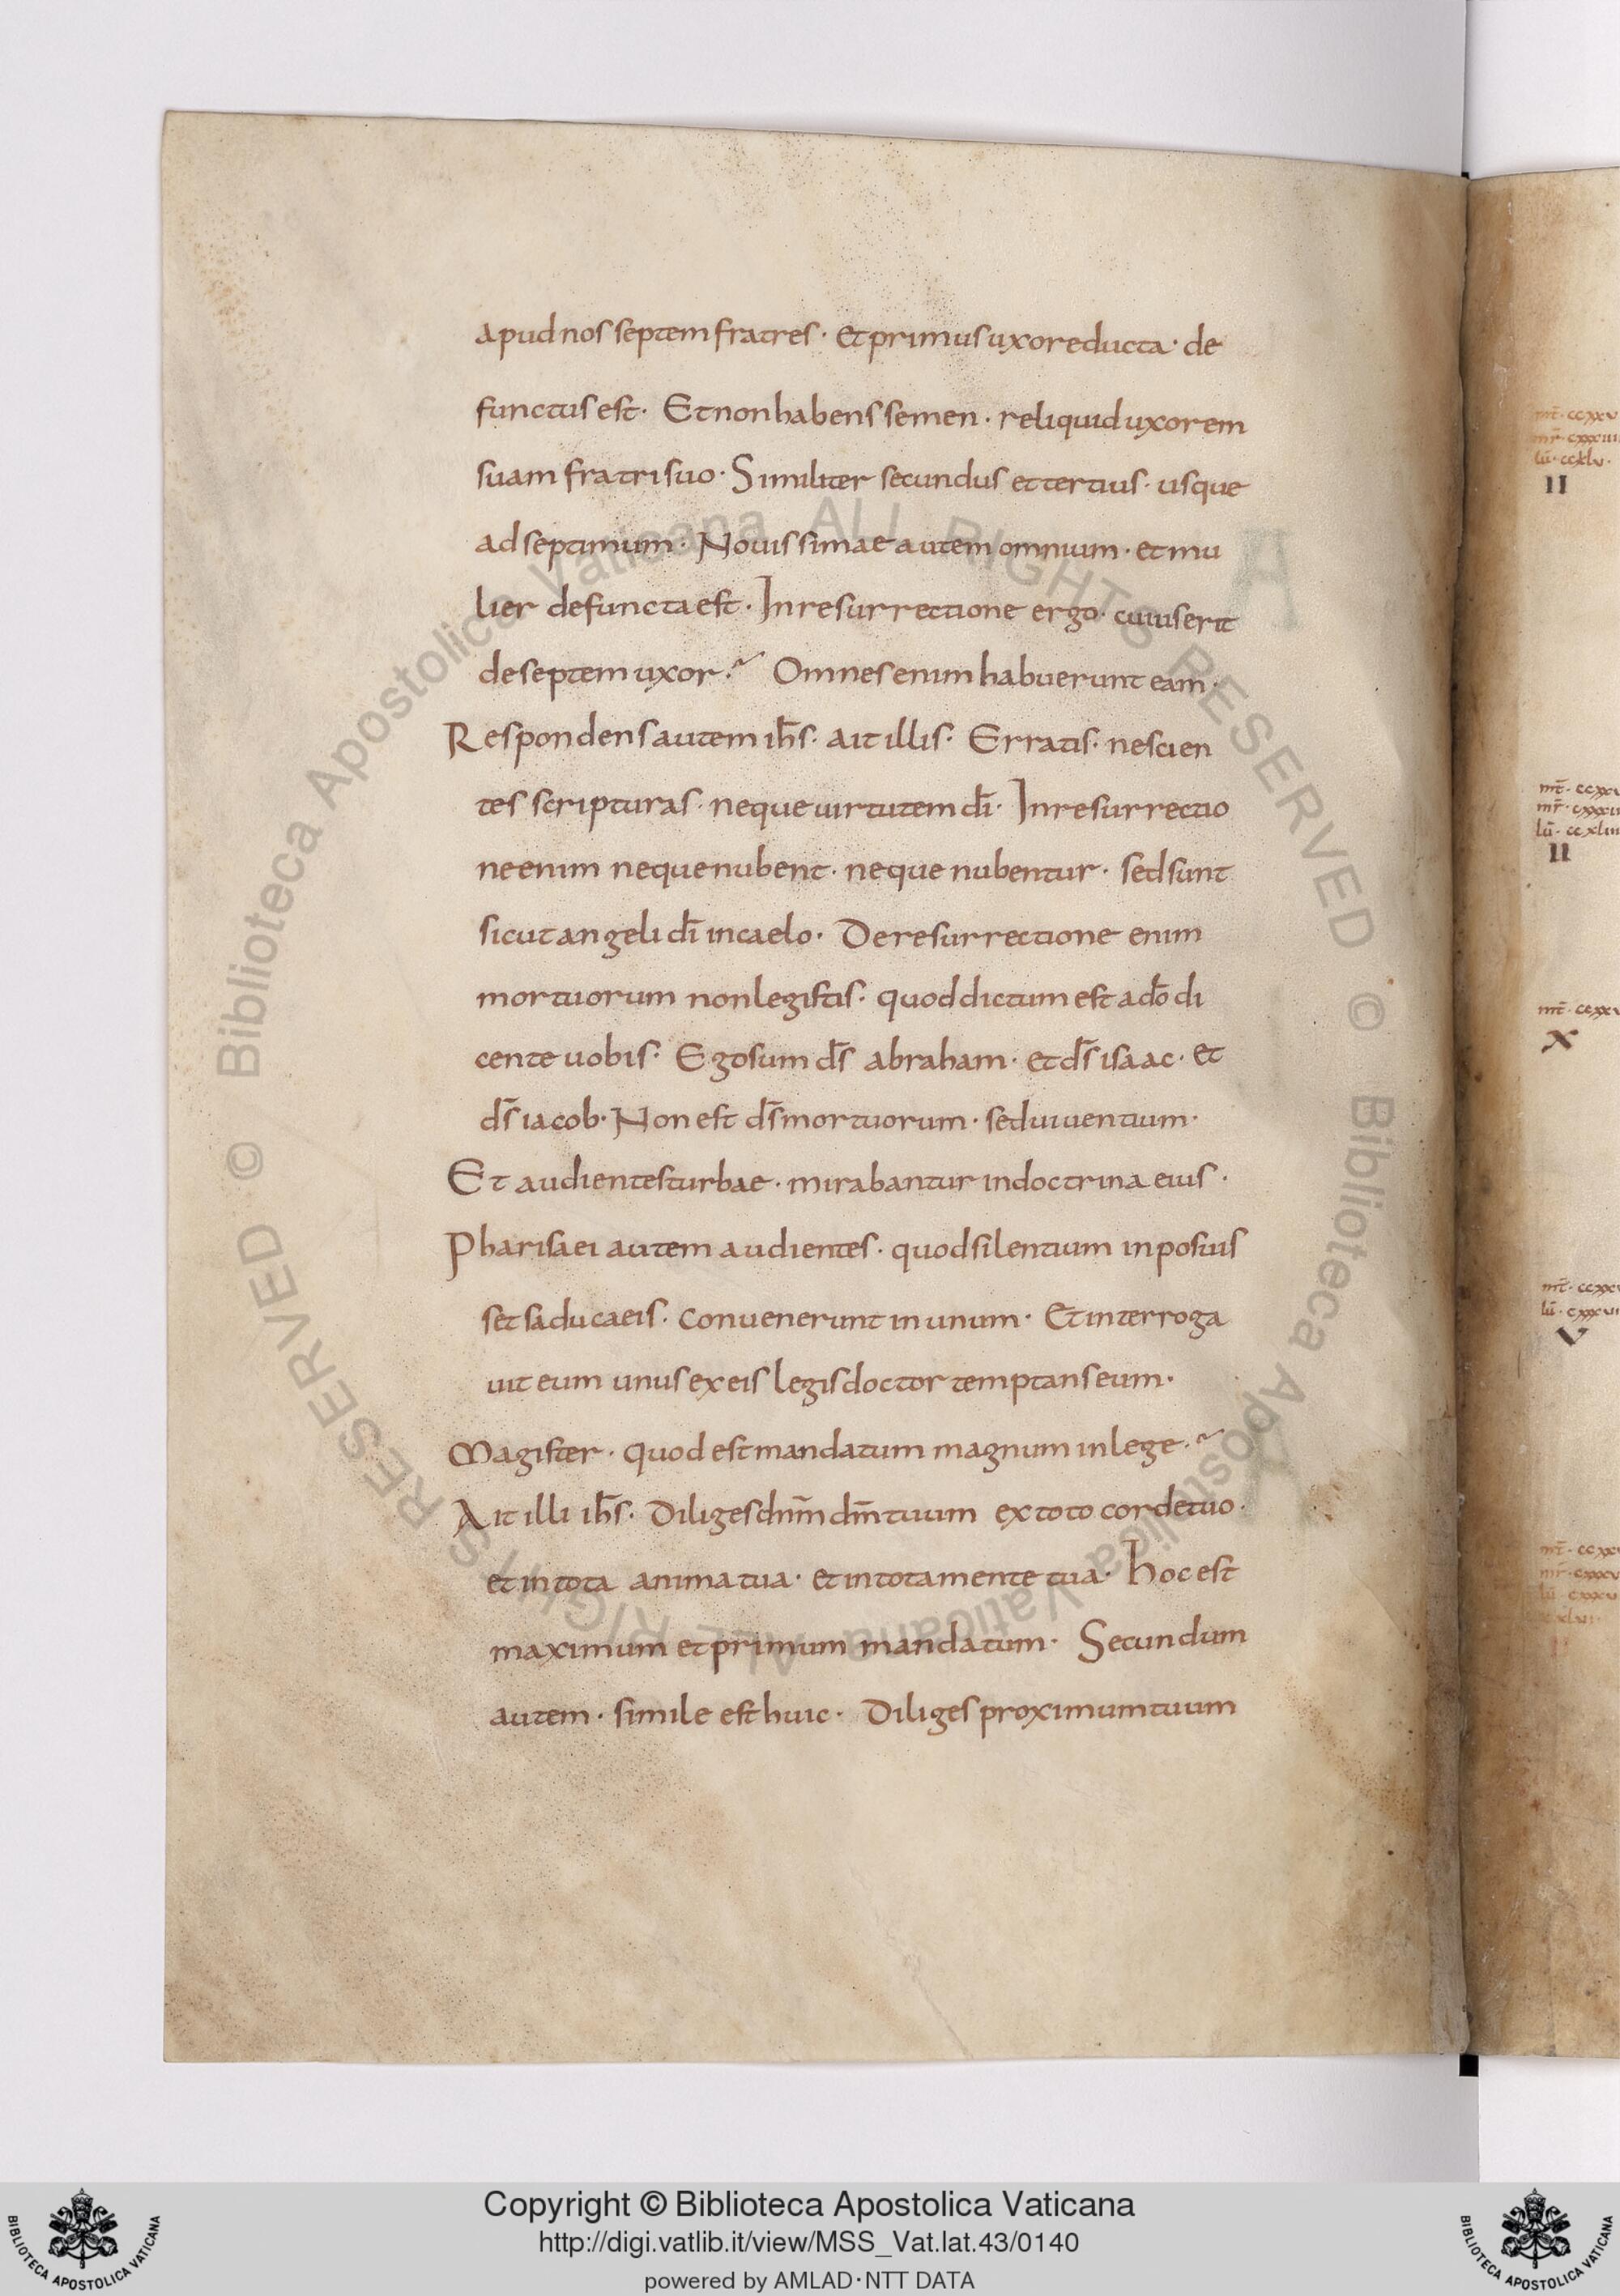 apud nos septem fratres · Et primus uxore ducta · de
functus est · Et non habens semen · reliquid uxorem
suam fratri suo · Similiter secundus et tertius · usque
ad septimum · Nouissimae autem omnium · et mu
lier defuncta est · In resurrectione ergo · cuius erit
de septem uxor? Omnes enim habuerunt eam ·
Respondens autem ihs̄ · ait illis · Erratis · nescien
tes scripturas · neque uirtutem dī · In resurrectio
ne enim neque nubent · neque nubentur · sed sunt
sicut angeli dī in caelo · De resurrectione enim
mortuorum non legistis · quod dictum est a dō di
cente uobis · Ego sum ds̄ abraham · et ds̄ isaac · et
ds̄ iacob · Non est ds̄ mortuorum · sed uiuentium ·
Et audientes turbae · mirabantur in doctrina eius ·
Pharisaei autem audientes · quod silentium inposuis
set saducaeis · conuenerunt in unum · Et interroga
uit eum unus ex eis legis doctor temptans eum ·
Magister · quod est mandatum magnum in lege?
Ait illi ihs̄ · Diliges dnm̄ dm̄ tuum ex toto corde tuo ·
et in tota anima tua · et in tota mente tua · hoc est
maximum et primum mandatum · Secundum
autem · simile est huic · Diliges proximum tuum
II
II
X
V
© Biblioteca Apostolica Vaticana ALL RIGHTS RESERVED
© Biblioteca Apostolica Vaticana ALL RIGHTS RESERVED
BIBLIOTECA APOSTOLICA VATICANA
Copyright © Biblioteca Apostolica Vaticana
http://digi.vatlib.it/view/MSS_Vat.lat.43/0140
powered by AMLAD·NTT DATA
BIBLIOTECA APOSTOLICA VATICANA